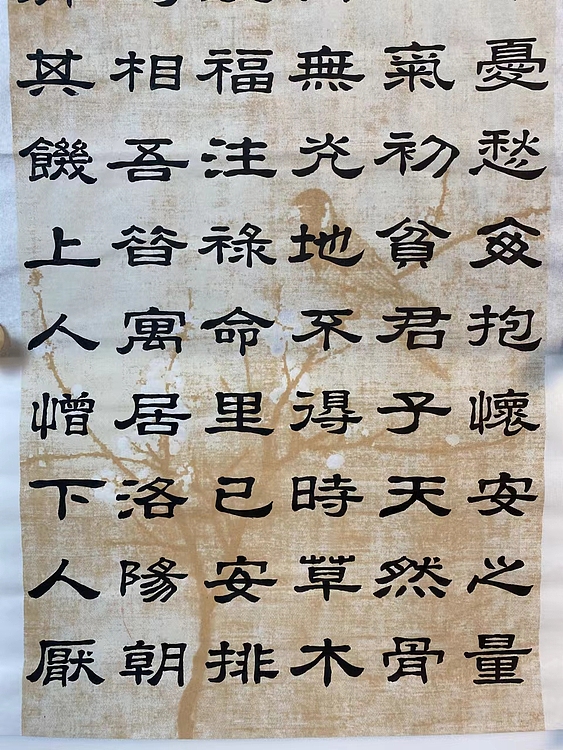 憂愁每抱懷安之量
氣初貧君子天然骨
無光地不得時草木
福注祿命里已安排
相吾昔寓居洛陽朝
其饑上人憎下人厭